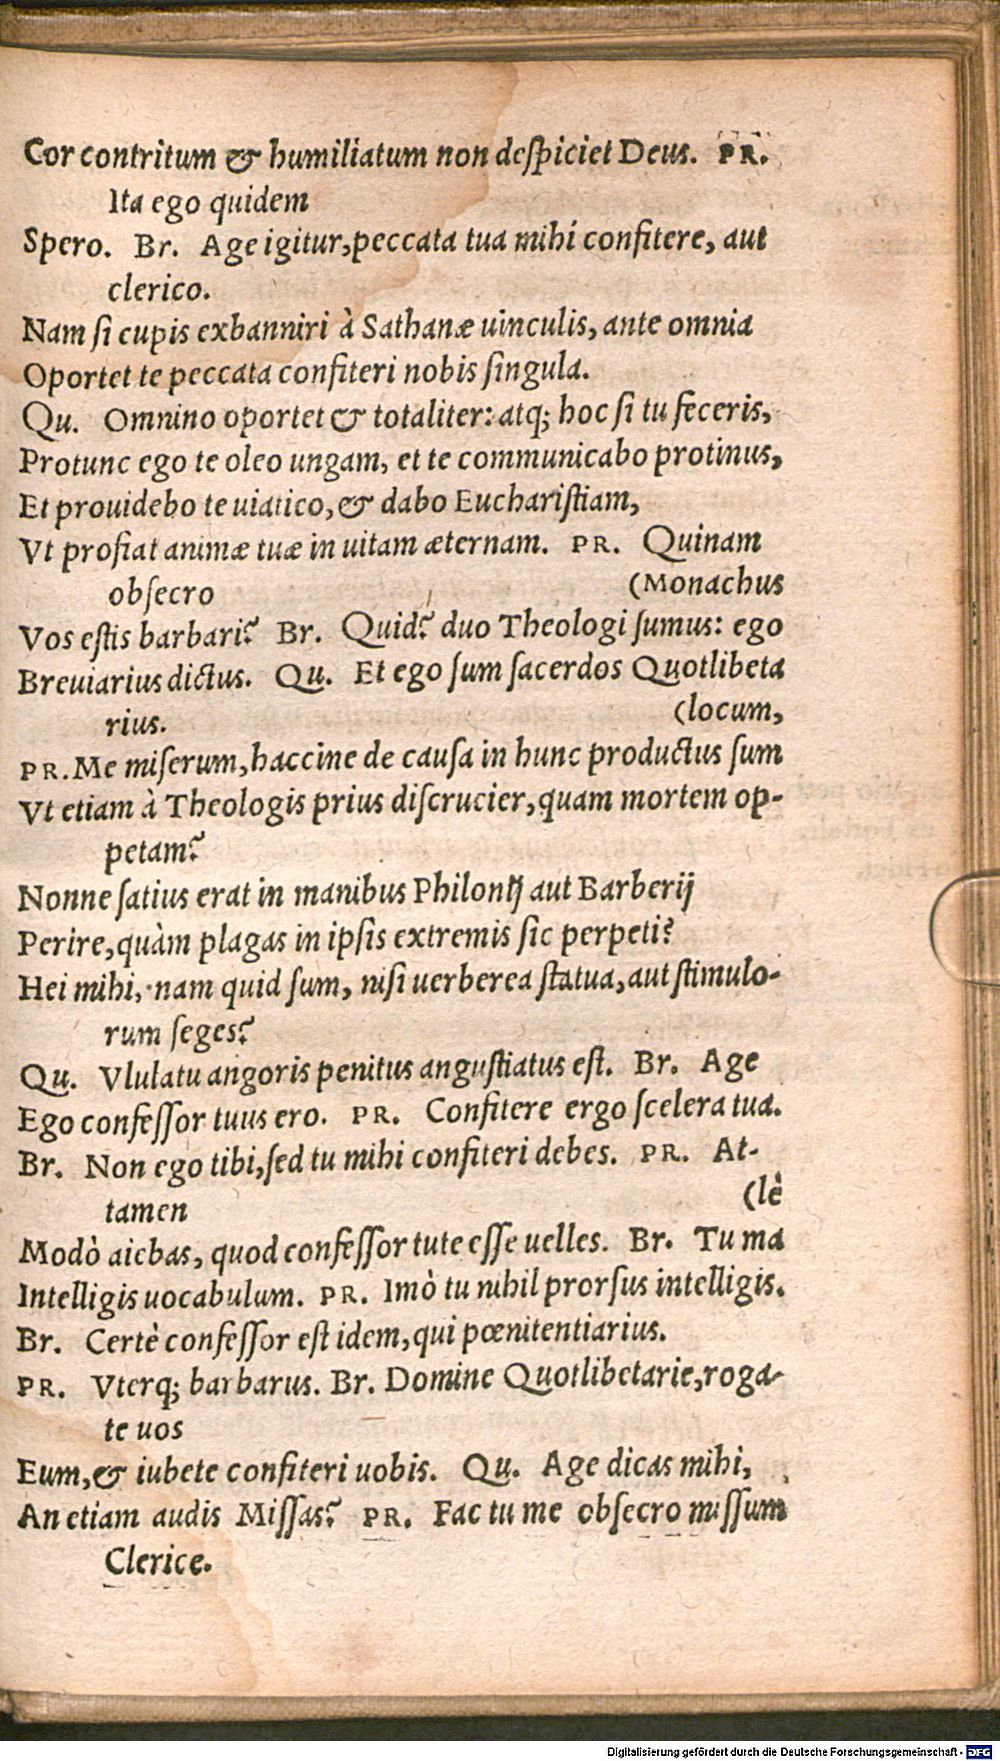 Cor contritum & humiliatum non deſpiciet Deus. PR.
Ita ego quidem
Spero. Br. Age igitur, peccata tua mihi confitere, aut
clerico.
Nam ſi cupis exbanniri à Sathanæ uinculis, ante omnia
Oportet te peccata confiteri nobis ſingula.
Qu. Omnino oportet & totaliter: atq; hoc ſi tu feceris,
Protunc ego te oleo ungam, et te communicabo protinus,
Et prouidebo te uiatico, & dabo Euchariſtiam,
Vt profiat animæ tuæ in uitam æternam. PR. Quinam
obſecro (Monachus
Vos eſtis barbari? Br. Quid? duo Theologi ſumus: ego
Breuiarius dictus. Qu. Et ego ſum ſacerdos Quotlibeta
rius. (locum,
PR. Me miſerum, haccine de cauſa in hunc productus ſum
Vt etiam à Theologis prius diſcrucier, quam mortem op-
petam?
Nonne ſatius erat in manibus Philontij aut Barberij
Perire, quàm plagas in ipſis extremis ſic perpeti?
Hei mihi, nam quid ſum, niſi uerberea ſtatua, aut ſtimulo-
rum ſeges?
Qu. Vlulatu angoris penitus anguſtiatus eſt. Br. Age
Ego confeſſor tuus ero. PR. Confitere ergo ſcelera tua.
Br. Non ego tibi, ſed tu mihi confiteri debes. PR. At-
tamen (lè
Modò aiebas, quod confeſſor tute eſſe uelles. Br. Tu ma
Intelligis uocabulum. PR. Imò tu nihil prorſus intelligis.
Br. Certè confeſſor eſt idem, qui pœnitentiarius.
PR. Vterq; barbarus. Br. Domine Quotlibetarie, roga-
te uos
Eum, & iubete confiteri uobis. Qu. Age dicas mihi,
An etiam audis Miſſas? PR. Fac tu me obſecro miſſum
Clerice.
Digitalisierung gefördert durch die Deutsche Forschungsgemeinschaft - DFG